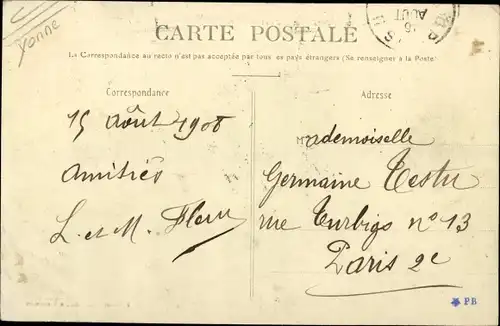 Yonne
CARTE POSTALE
La Correspondance au recto n'est pas acceptée par tous les pays étrangers (Se renseigner à la Poste)
Correspondance
Adresse
15 Août 1908
Amitiés
L. et M.
Mademoiselle
Germaine Testu
rue Turbigo n° 13
Paris 2e
PB